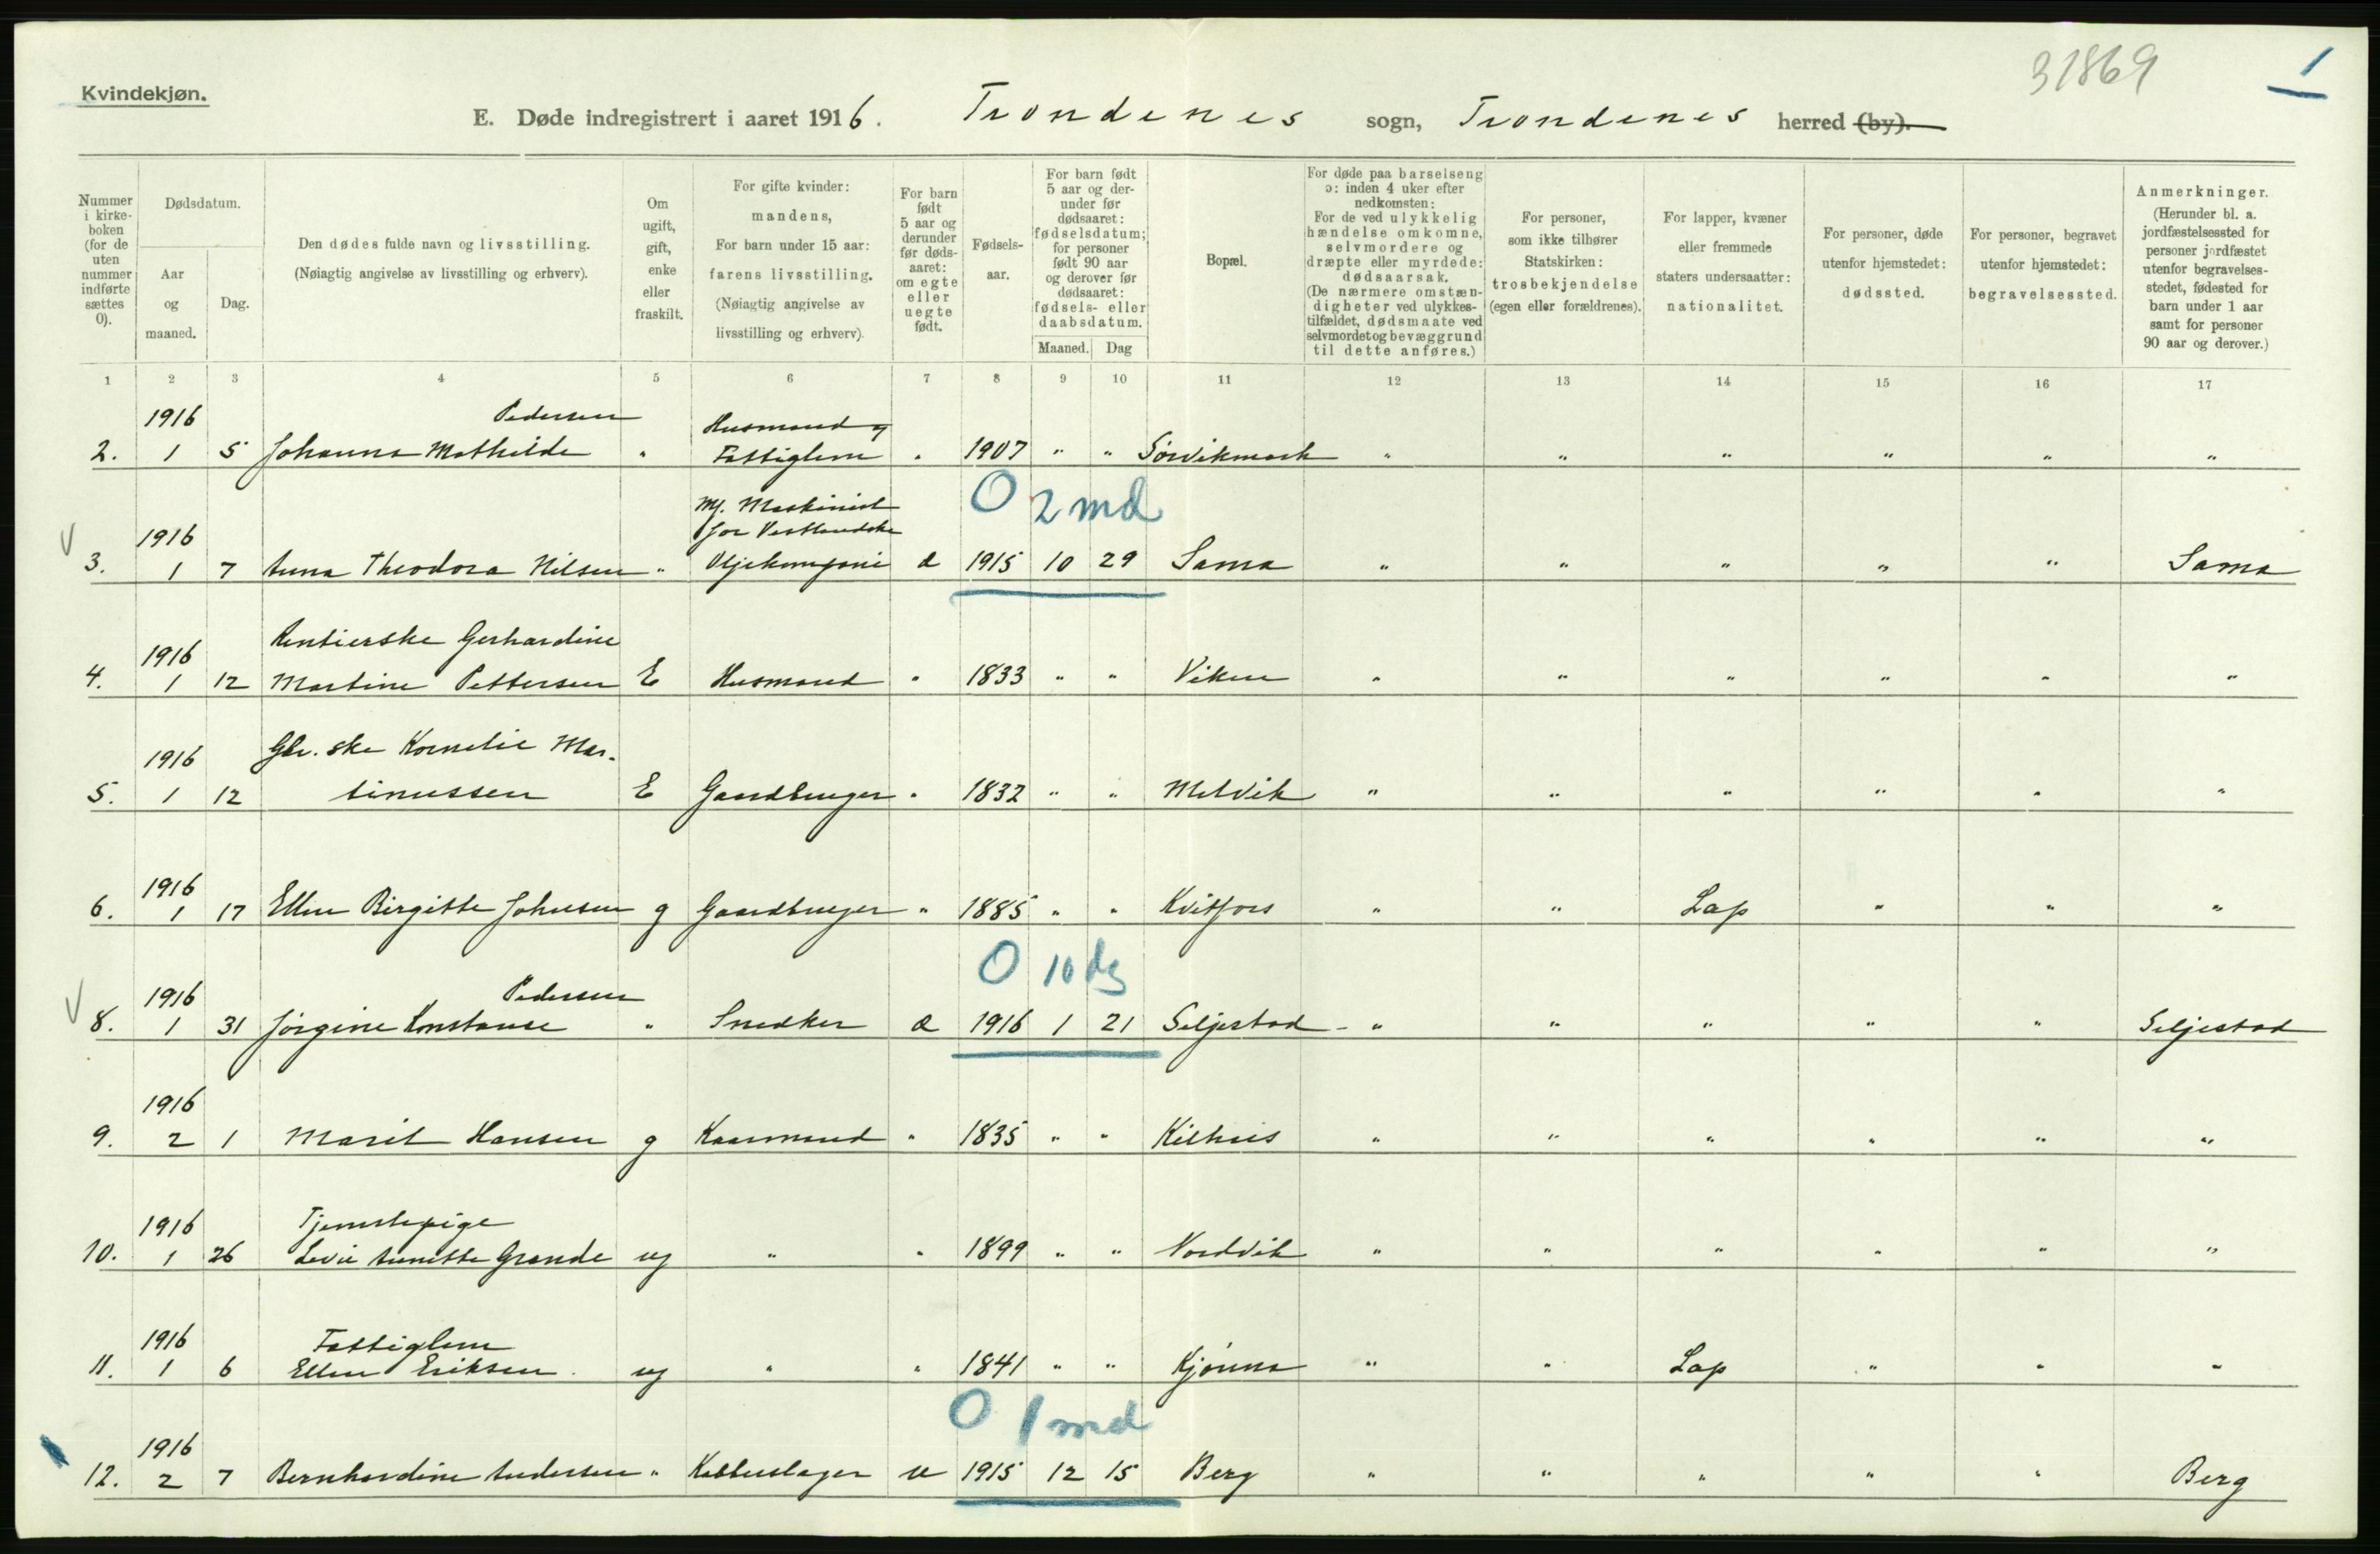 31869
1
Kvindekjøn.
E. Døde indregistrert i aaret 1916. Trondenes sogn, Trondenes herred (by).
Nummer i kirke-boken (for de uten nummer indførte sættes 0).
Dødsdatum.
Aar og maaned.
Dag.
Den dødes fulde navn og livsstilling.
(Nøiagtig angivelse av livsstilling og erhverv).
Om ugift, gift, enke eller fraskilt.
For gifte kvinder: mandens,
For barn under 15 aar: farens livsstilling.
(Nøiagtig angivelse av livsstilling og erhverv).
For barn født 5 aar og derunder før døds-aaret: om egte eller uegte født.
Fødsels-aar.
For barn født 5 aar og der-under før dødsaaret: fødselsdatum; for personer født 90 aar og derover før dødsaaret: fødsels- eller daabsdatum.
Maaned. Dag
Bopæl.
For døde paa barselseng ɔ: inden 4 uker efter nedkomsten:
For de ved ulykkelig hændelse omkomne, selvmordere og dræpte eller myrdede: dødsaarsak.
(De nærmere omstæn-digheter ved ulykkes-tilfældet, dødsmaate ved selvmordet og bevæggrund til dette anføres.)
For personer, som ikke tilhører Statskirken: trosbekjendelse (egen eller forældrenes).
For lapper, kvæner eller fremmede staters undersaatter: nationalitet.
For personer, døde utenfor hjemstedet: dødssted.
For personer, begravet utenfor hjemstedet: begravelsessted.
Anmerkninger.
(Herunder bl. a. jordfæstelsessted for personer jordfæstet utenfor begravelses-stedet, fødested for barn under 1 aar samt for personer 90 aar og derover.)
1 2 3 4 5 6 7 8 9 10 11 12 13 14 15 16 17
1916 Pedersen Husmand og
2. 1 5 Johanna Mathilde " Fattiglem " 1907 " " Sørvikmark " " " " " "
0 2 md
V 1916 Mf. Maskinist for Vestlandske
3. 1 7 Anna Theodora Nilsen " Oljekompani d 1915 10 29 Sama " " " " " Sama
1916 Rentierske Gerhardine
4. 1 12 Martine Pettersen E Husmand " 1833 " " Viken " " " " " "
1916 Gbr.ske Kornelie Mar-
5. 1 12 tinussen E Gaardbruger " 1832 " " Melvik " " " " " "
1916
6. 1 17 Ellen Birgitte Johnsen g Gaardbruger " 1885 " " Kvitfors " " Lap " " "
0 10 dg
V 1916 Pedersen
8. 1 31 Jørgine Konstanse " Snedker d 1916 1 21 Seljestad - " " " " " Seljestad
1916
9. 2 1 Marit Hansen g Kaarmand " 1835 " " Kilhus " " " " " "
1916 Tjenestepige
10. 1 26 Lovie Anette Grande ug " " 1899 " " Nordvik " " " " " "
1916 Fattiglem
11. 1 6 Ellen Eriksen. ug " " 1841 " " Kjønna " " Lap " " "
0 1 md
1916
12. 2 7 Bernhardine Andersen " u 1915 12 15 Berg " " " " " Berg